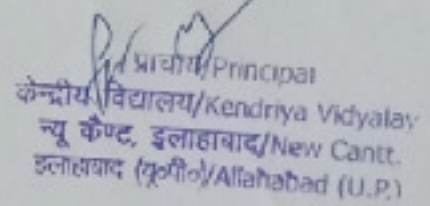 प्राचार्य/Principal
केन्द्रीय विद्यालय/Kendriya Vidyalay
न्यू कैण्ट, इलाहाबाद/New Cantt.
इलाहाबाद (यू०पी०)/Allahabad (U.P.)